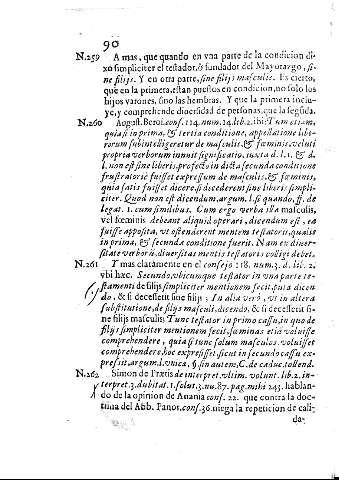 90
N.259 A mas, que quando en vna parte de la condicion di-
xo simpliciter el testador, & fundador del Mayorazgo, si-
ne filijs. Y en otra parte, sine filijs masculis. Es cierto,
que en la primera estan puestos en condicion, no solo los
hijos varones, sino las hembras. Y que la primera inclu-
ye, y comprehende diversidad de personas, que la segūda.
N.260 August. Beroi. conf. 124. num. 24. lib. 2. ibi: Tum etiam,
quia si in prima, & tertia conditione, appellatione libe-
rorum subintelligeretur de masculis, & fœminis, veluti
propria verborum innuit significatio, iuxta d. l. 1. & d.
l. non est sine liberis, profecto in dicta secunda conditione
frustratoriè fuisset expressum de masculis, & fœminis,
quia satis fuisset dicere, si decederent sine liberis simpli-
citer. Quod non est dicendum, argum. l. si quando, ff. de
legat. 1. cum similibus. Cum ergo verba illa masculis,
vel fœminis debeant aliquid operari, dicendum est, ea
fuisse apposita, vt ostenderent mentem testatoris, qualis
in prima, & secunda conditione fuerit. Nam ex diver-
sitate verborū, diversitas mentis testatoris colligi debet.
N.261 Y mas claramente en el consejo 118. num. 3. d. lib. 2.
vbi hæc. Secundo, vbicunque testator in vna parte te-
stamenti de filijs simpliciter mentionem fecit, puta dicen-
do, & si decesserit sine filijs; In alia verò, vt in altera
substitutione, de filijs mascul. dicendo, & si decesserit si-
ne filijs masculis; Tunc testator in primo casu, in quo de
filijs simpliciter mentionem fecit, fœminas etiā voluisse
comprehendere, quasi si tunc solum masculos voluisset
comprehendere, hoc expressisset, sicut in secundo casu ex-
pressit, argum. l. vnica, § sin autem, C. de caduc. tollend.
N.262 Simon de Prætis de interpret. vltim. volunt. lib. 2. in-
terpret. 3. dubitat. 1. solut. 3. nu. 87. pag. mihi 243. hablan-
do de la opinion de Anania conf. 22. que contra la doc-
trina del Abb. Panor. conf. 36. niega la repeticion de cali-
da-